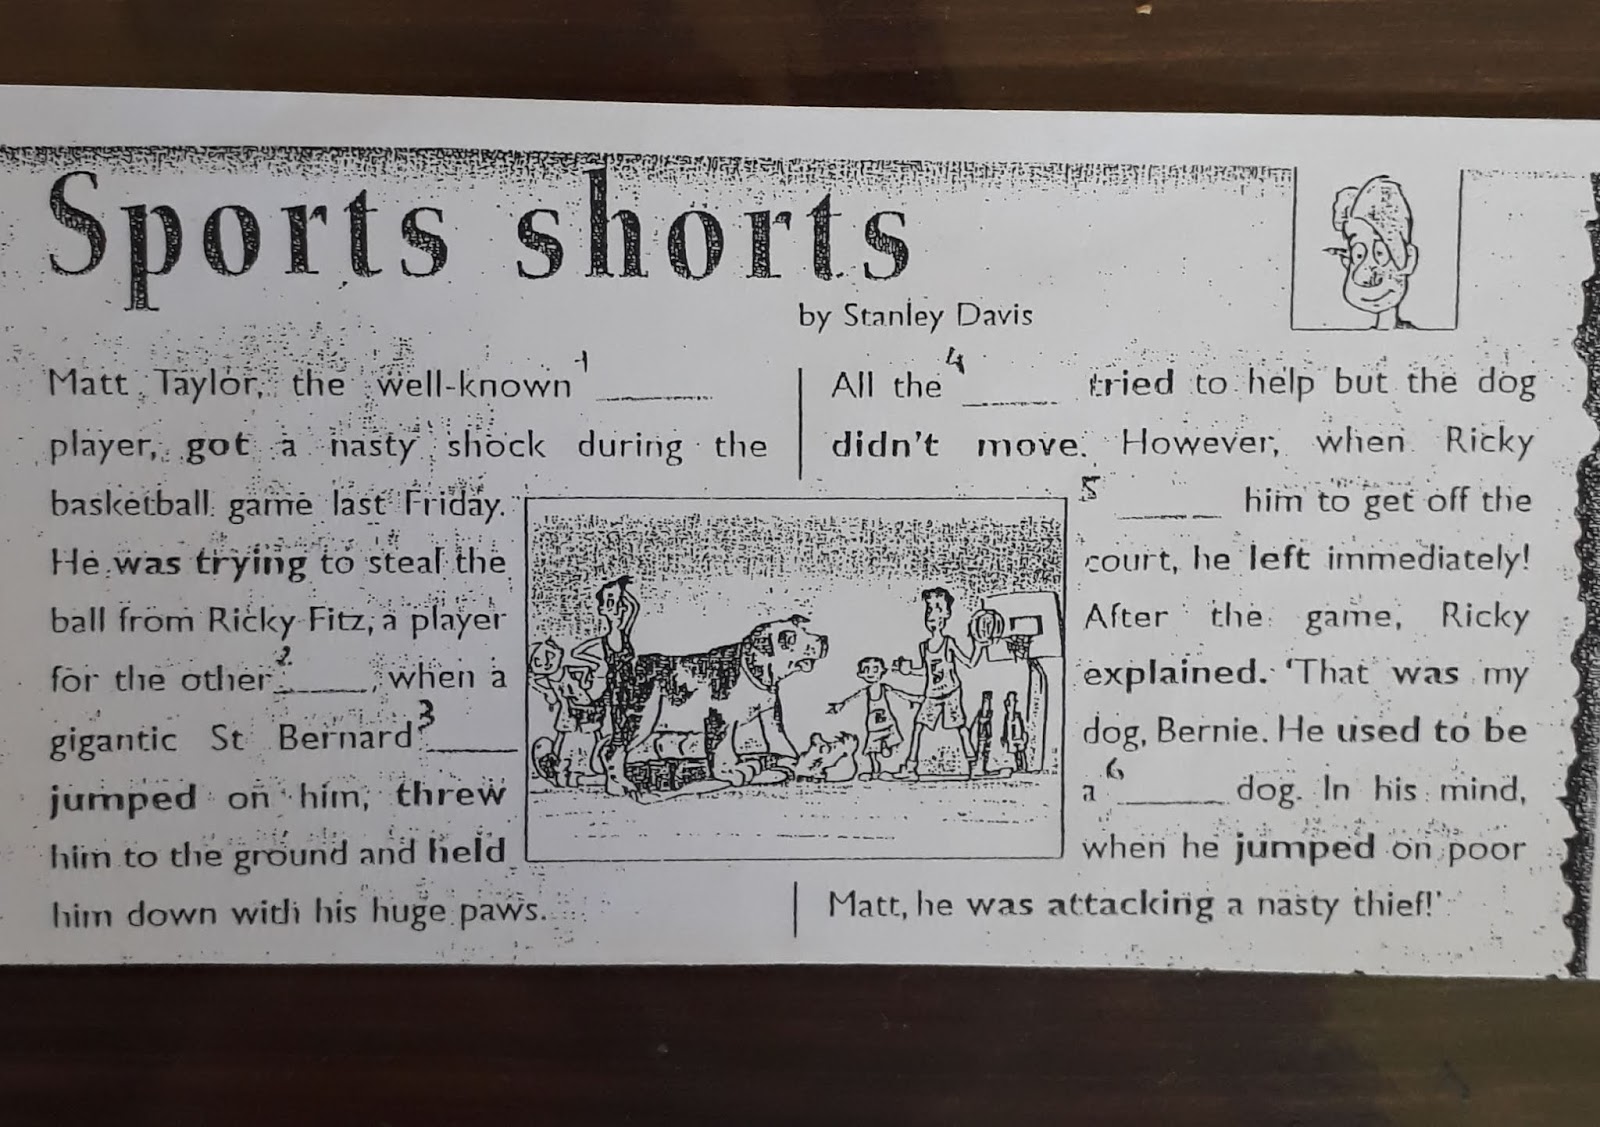 Sports shorts
by Stanley Davis
Matt Taylor, the well-known 1 ______
player, got a nasty shock during the
basketball game last Friday.
He was trying to steal the
ball from Ricky Fitz, a player
for the other 2 ______, when a
gigantic St Bernard 3 ______
jumped on him, threw
him to the ground and held
him down with his huge paws.
All the 4 ______ tried to help but the dog
didn't move. However, when Ricky
5 ______ him to get off the
court, he left immediately!
After the game, Ricky
explained. 'That was my
dog, Bernie. He used to be
a 6 ______ dog. In his mind,
when he jumped on poor
Matt, he was attacking a nasty thief!'